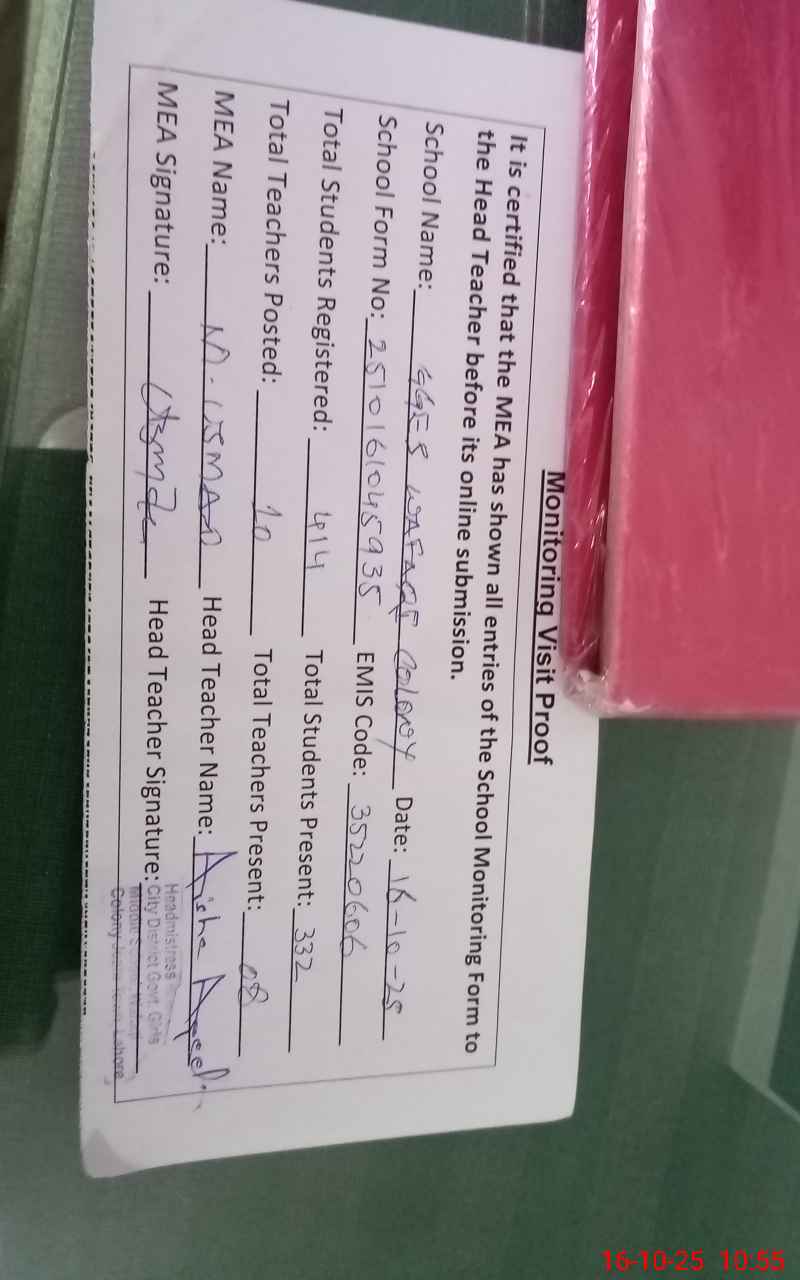 Monitoring Visit Proof
It is certified that the MEA has shown all entries of the School Monitoring Form to
the Head Teacher before its online submission.
School Name: GGES WAFAQI Colony Date: 16-10-25
School Form No: 2510161045935 EMIS Code: 35220606
Total Students Registered: 414 Total Students Present: 332
Total Teachers Posted: 10 Total Teachers Present: 08
MEA Name: M. USMAN Head Teacher Name: Aisha
MEA Signature: Head Teacher Signature:
Headmistress
City District Govt. Girls
Middle
Colony Lahore
16-10-25 10:55